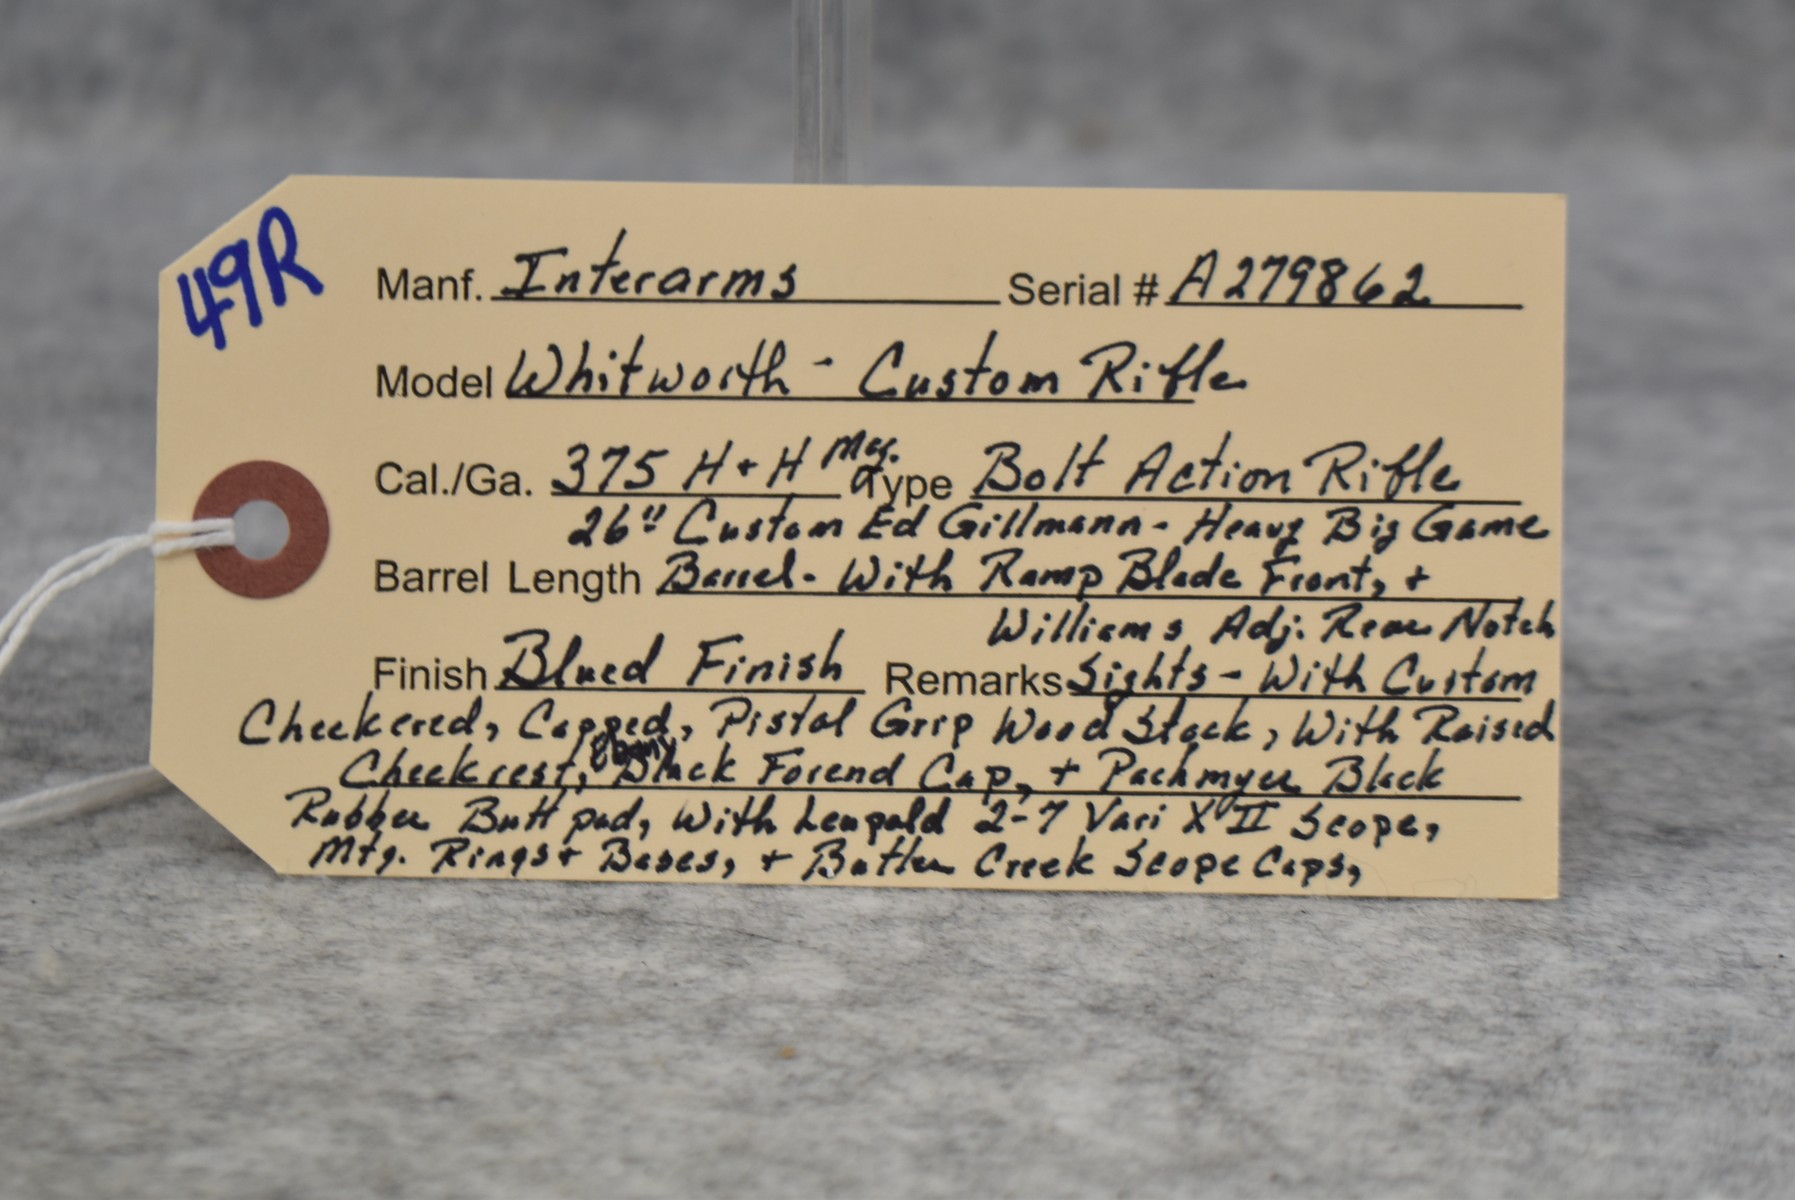 49R
Manf. Interarms Serial # A279862
Model Whitworth - Custom Rifle
Cal./Ga. 375 H+H Mag. Type Bolt Action Rifle
26" Custom Ed Gillmann - Heavy Big Game
Barrel Length Barrel - With Ramp Blade Front, +
Williams Adj. Rear Notch
Finish Blued Finish Remarks Sights - With Custom
Checkered, Capped, Pistol Grip Wood Stock, With Raised
Cheekrest, Ebony Black Forend Cap, + Pachmyer Black
Rubber Butt pad, With Leupold 2-7 Vari X II Scope,
Mtg. Rings + Bases, + Butler Creek Scope Caps,